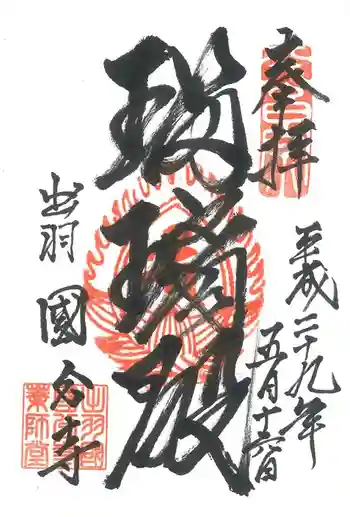 奉拝
平成二十九年
五月十六日
瑠璃殿
出羽
國分寺
出羽國
國分寺
薬師堂